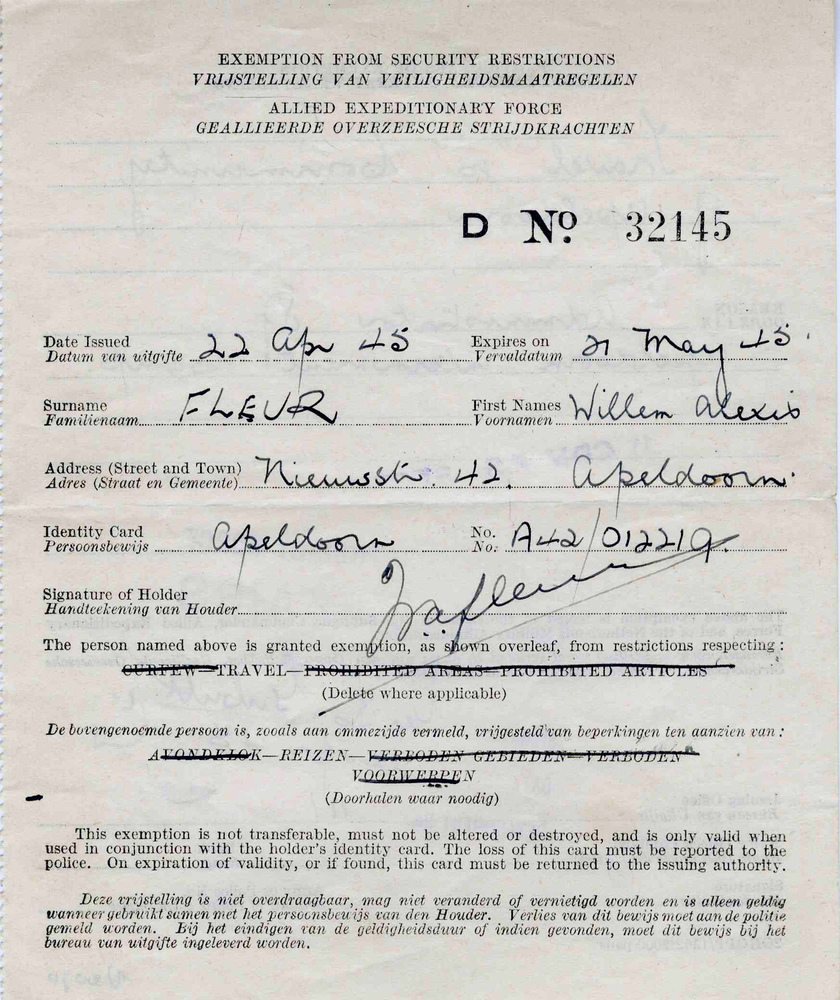 EXEMPTION FROM SECURITY RESTRICTIONS
VRIJSTELLING VAN VEILIGHEIDSMAATREGELEN
ALLIED EXPEDITIONARY FORCE
GEALLIEERDE OVERZEESCHE STRIJDKRACHTEN
D No. 32145
Date Issued 22 Apr 45 Expires on 21 May 45.
Datum van uitgifte Vervaldatum
Surname FLEUR First Names Willem Alexis
Familienaam Voornamen
Address (Street and Town) Nieuwstr. 42. Apeldoorn.
Adres (Straat en Gemeente)
Identity Card Apeldoorn No. A42/012219.
Persoonsbewijs No.
Signature of Holder
Handteekening van Houder
The person named above is granted exemption, as shown overleaf, from restrictions respecting:
CURFEW—TRAVEL—PROHIBITED AREAS—PROHIBITED ARTICLES
(Delete where applicable)
De bovengenoemde persoon is, zooals aan ommezijde vermeld, vrijgesteld van beperkingen ten aanzien van:
AVONDKLOK—REIZEN—VERBODEN GEBIEDEN—VERBODEN
VOORWERPEN
(Doorhalen waar noodig)
This exemption is not transferable, must not be altered or destroyed, and is only valid when
used in conjunction with the holder's identity card. The loss of this card must be reported to the
police. On expiration of validity, or if found, this card must be returned to the issuing authority.
Deze vrijstelling is niet overdraagbaar, mag niet veranderd of vernietigd worden en is alleen geldig
wanneer gebruikt samen met het persoonsbewijs van den Houder. Verlies van dit bewijs moet aan de politie
gemeld worden. Bij het eindigen van de geldigheidsduur of indien gevonden, moet dit bewijs bij het
bureau van uitgifte ingeleverd worden.